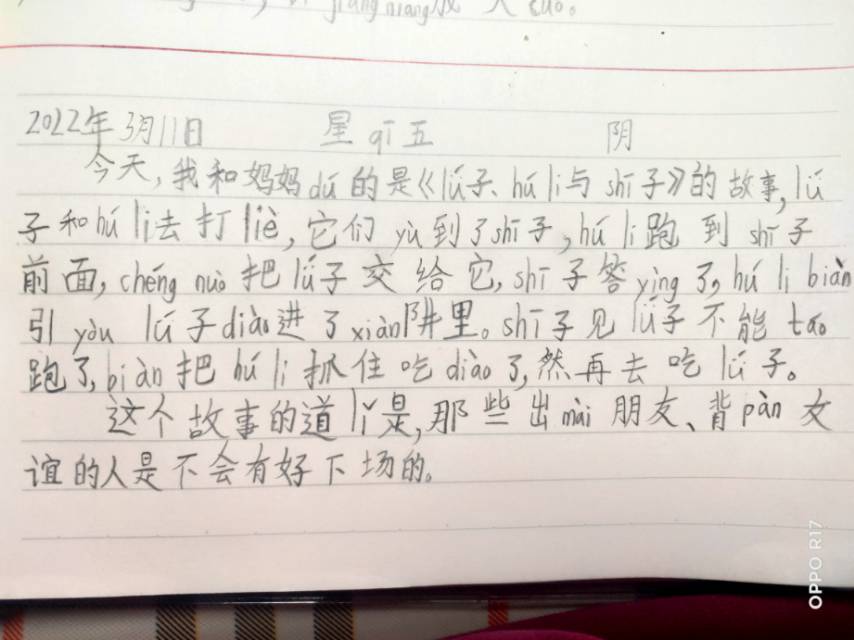 jiang niang 人 cuo。
2022年3月11日 星qī五 阴
今天,我和妈妈dú的是《lǘ子、hú li与shī子》的故事,lǘ
子和hú li去打liè,它们yù到了shī子,hú li跑到shī子
前面,chéng nuò把lǘ子交给它,shī子答yìng了,hú li biàn
引yòu lǘ子diào进了xiàn阱里。shī子见lǘ子不能táo
跑了,biàn把hú li抓住吃diào了,然再去吃lǘ子。
这个故事的道lǐ是,那些出mài朋友、背pàn友
谊的人是不会有好下场的。
OPPO R17